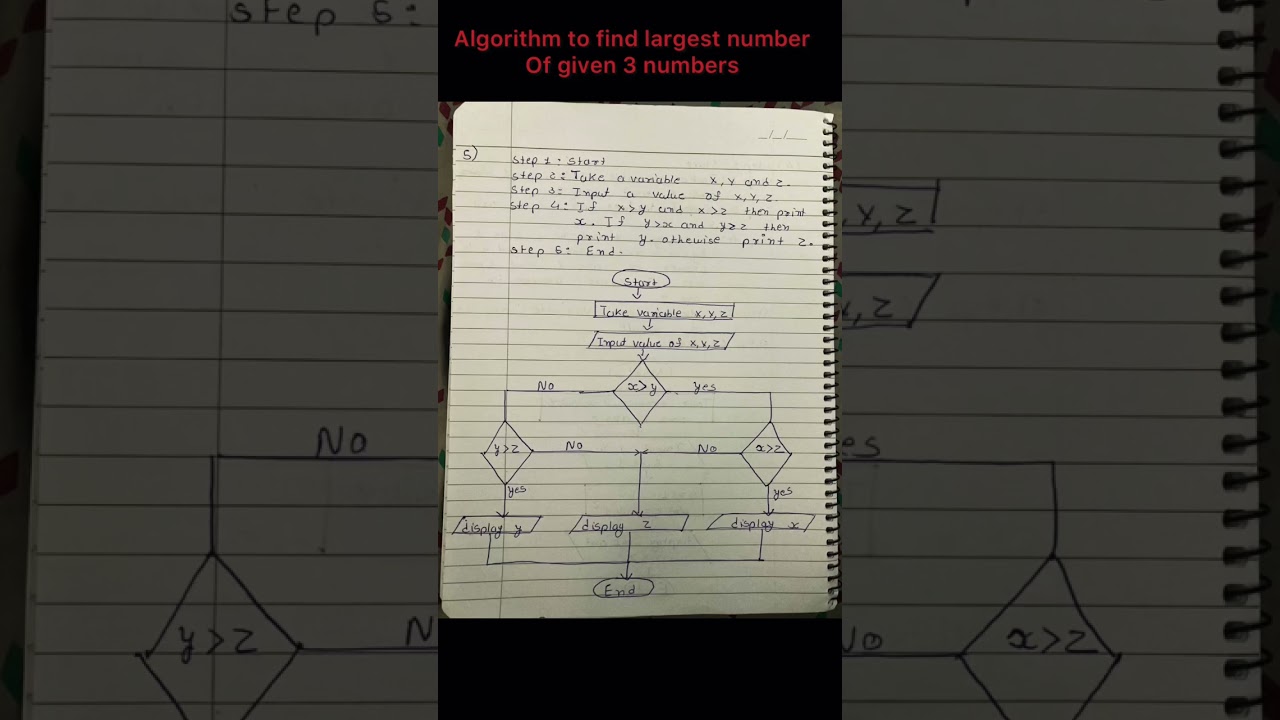 Algorithm to find largest number
Of given 3 numbers
_/_/__
5)
Step 1: Start
Step 2: Take a variable x, y and z.
Step 3: Input a value of x, y, z.
Step 4: If x>y and x>z then print
x. If y>x and y>z then
print y. othewise print z.
Step 5: End.
Start
Take variable x, y, z
Input value of x, x, z
x>y
No
yes
y>z
No
No
x>z
yes
yes
display y
display z
display x
End
step 5:
x, y, z
x, z
No
es
y>z
N
No
x>z